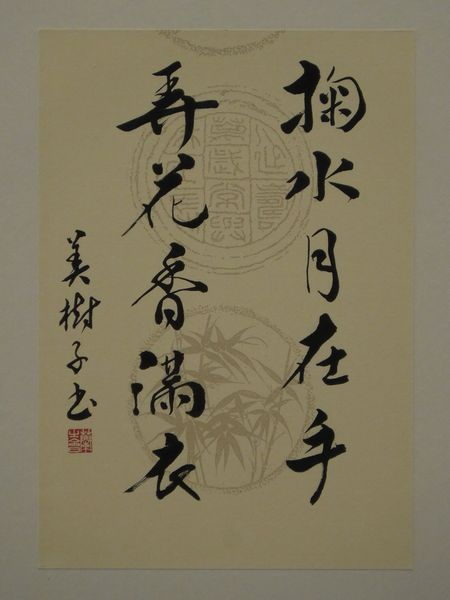 掬水月在手
弄花香満衣
美樹子书